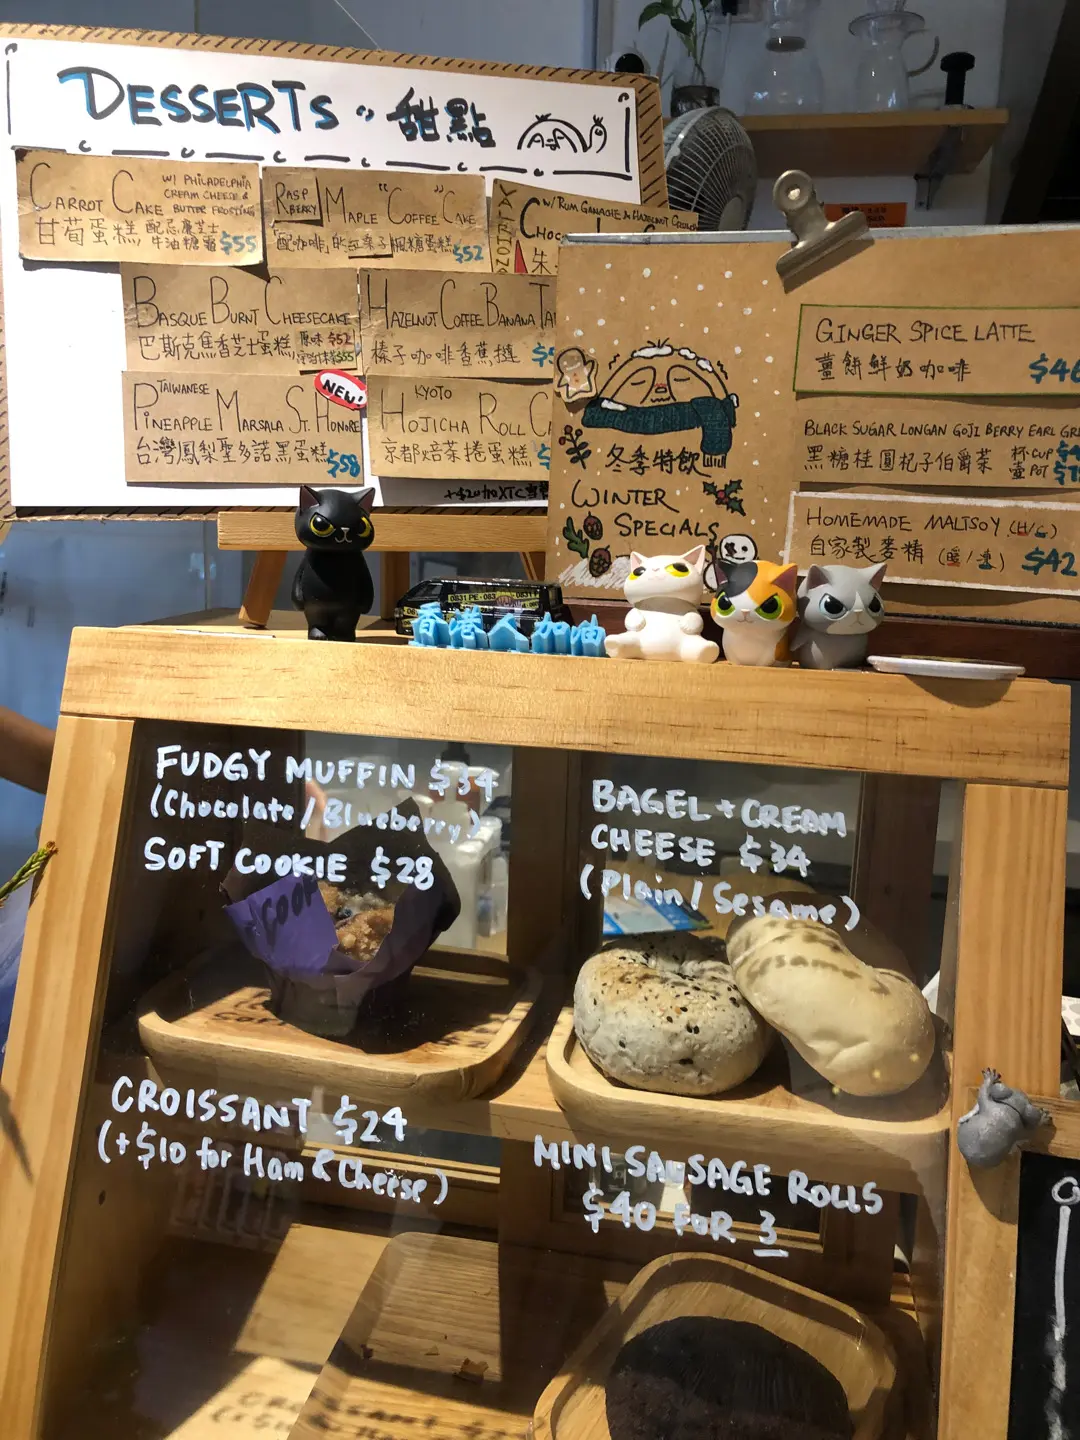 DESSERTS 甜點
CARROT CAKE W/ PHILADELPHIA
CREAM CHEESE &
BUTTER FROSTING
甘荀蛋糕 配忌廉芝士
牛油糖霜 $55
RASPBERRY MAPLE "COFFEE" CAKE
$52
W/ RUM GANACHE & HAZELNUT
BASQUE BURNT CHEESECAKE
巴斯克焦香芝士蛋糕 原味 $52
$55
HAZELNUT COFFEE BANANA
榛子咖啡香蕉撻
TAIWANESE
NEW!
PINEAPPLE MARSALA ST. HONORE
台灣鳳梨聖多諾黑蛋糕 $58
KYOTO
HOJICHA ROLL
京都焙茶捲蛋糕
冬季特飲
WINTER
SPECIALS
GINGER SPICE LATTE
薑餅鮮奶咖啡 $46
BLACK SUGAR LONGAN GOJI BERRY EARL
黑糖桂圓杞子伯爵茶 杯 CUP
壺 POT
HOMEMADE MALTSOY (H/C)
自家製麥精 $42
0831 PE
香港人加油
FUDGY MUFFIN $34
(Chocolate / Blueberry)
SOFT COOKIE $28
BAGEL + CREAM
CHEESE $34
(Plain / Sesame)
CROISSANT $24
(+$10 for Ham & Cheese)
MINI SAUSAGE ROLLS
$40 FOR 3